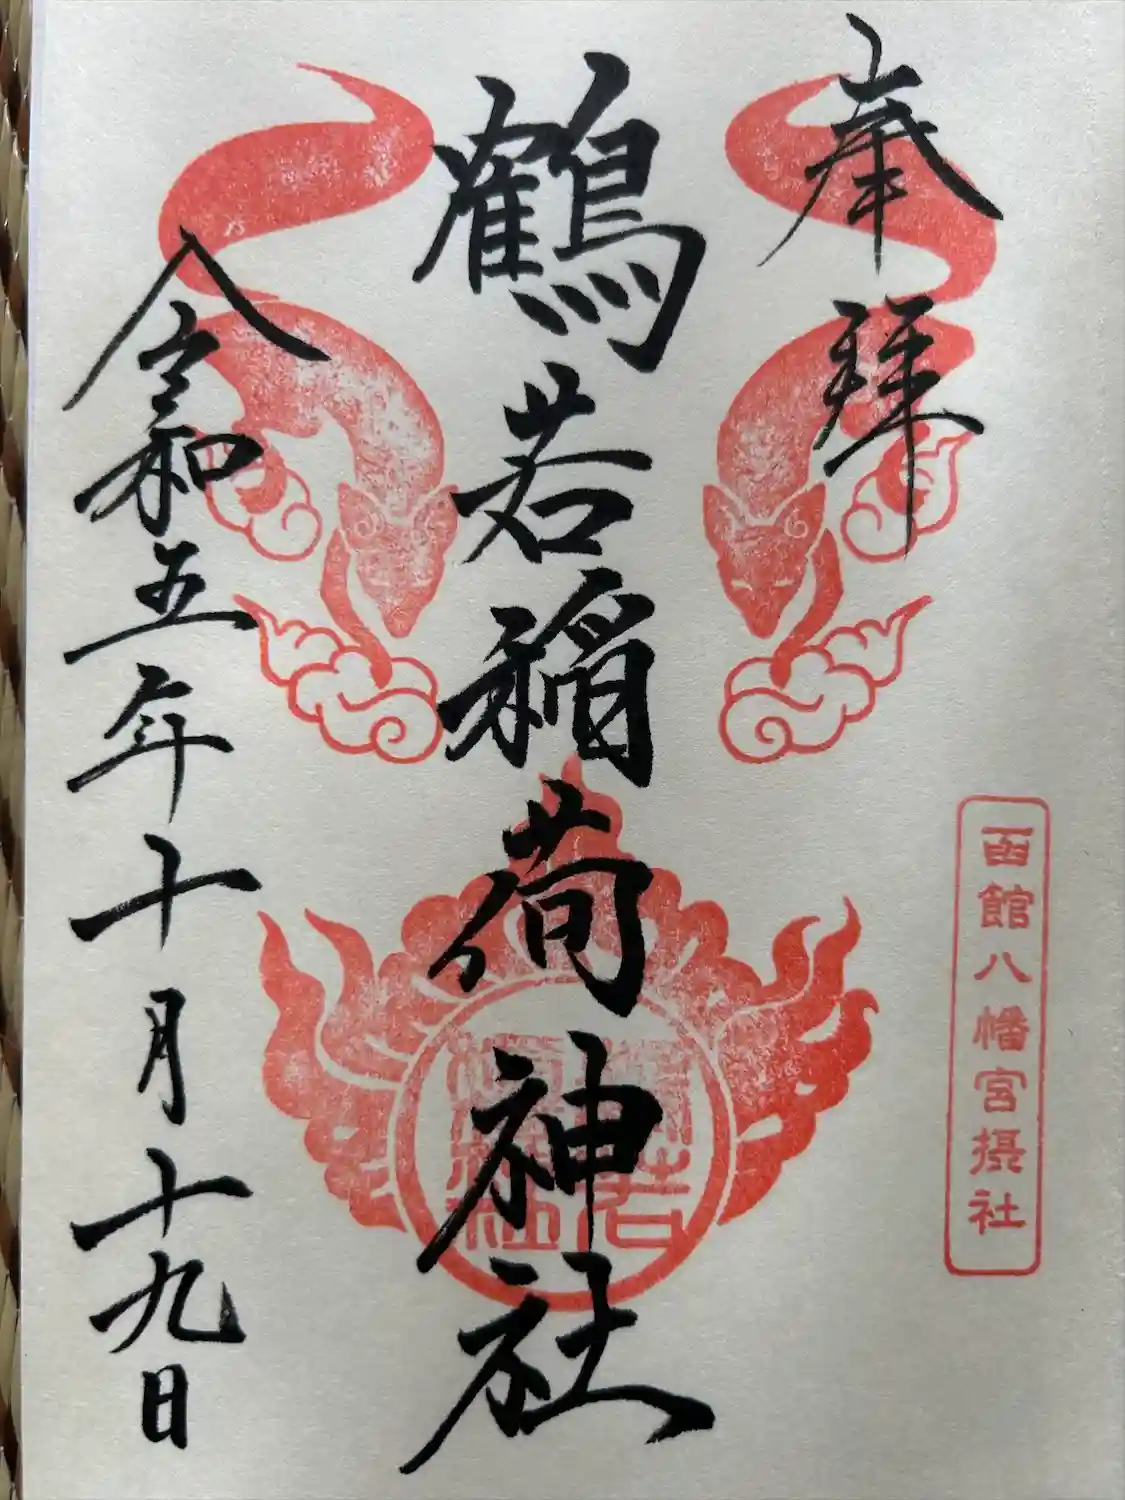 奉拝
函館八幡宮摂社
鶴若稲荷神社
令和五年十月十九日